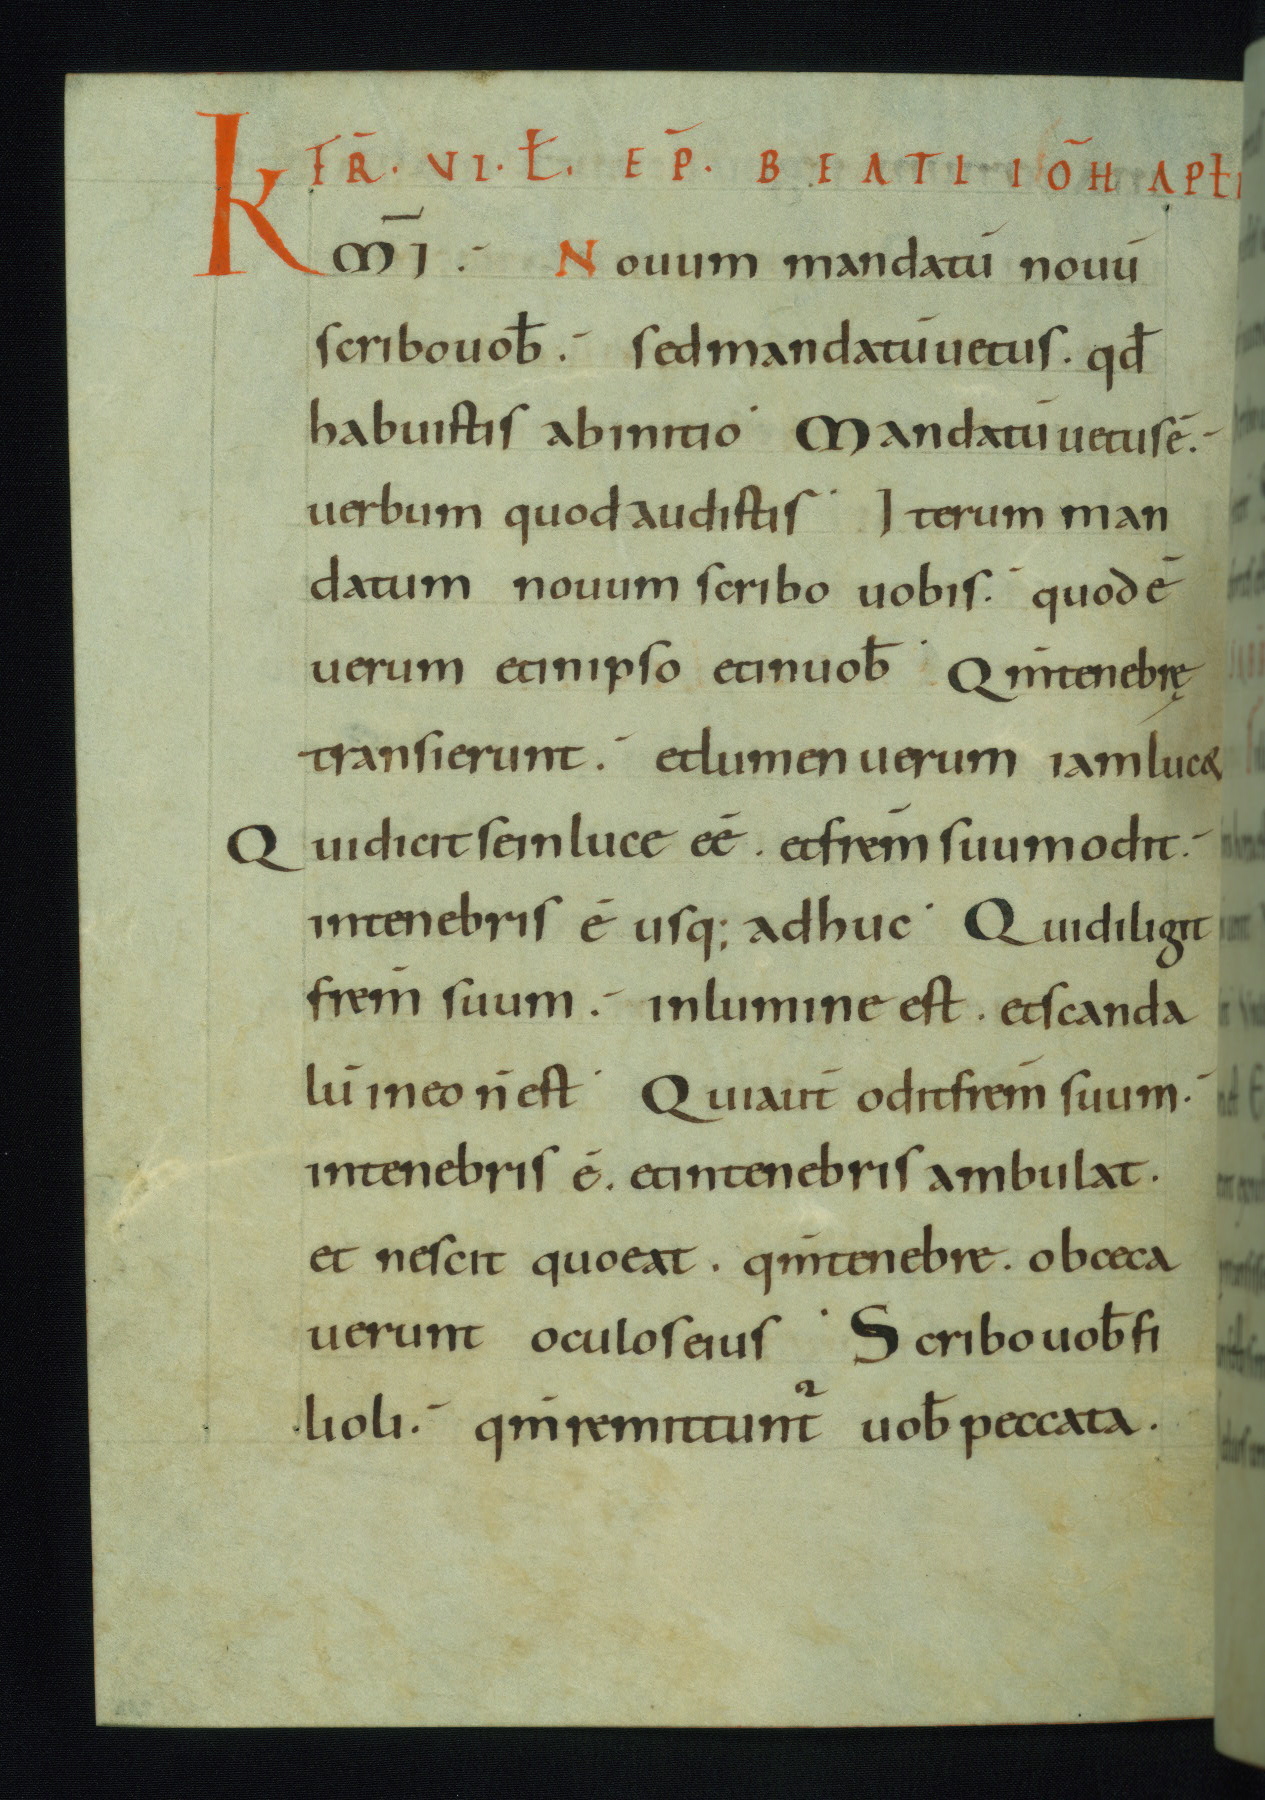 FR̄. VI. Ł. EP̄. BEATI IOH̄ APŁI
K̅m̅i :- Nouum mandatū nouū
scribo uob̄ :- sed mandatū uetus . qđ
habuistis abinitio · Mandatū uetus ē :-
uerbum quod audistis · Iterum man
datum nouum scribo uobis :- quod ē
uerum et inipso et inuob̄ · Qm̄ tenebrę
transierunt :- et lumen uerum iam luc&
Qui dicit se in luce eē . et frem̄ suum odit :-
intenebris ē usq; adhuc · Qui diligit
frem̄ suum :- in lumine est . et scanda
lū in eo n̄ est · Qui aut̄ odit frem̄ suum :-
intenebris ē . et intenebris ambulat .
et nescit quo eat . qm̄ tenebre . obceca
uerunt oculos eius · Scribo uob̄ fi
lioli :- qm̄ remittunt̄² uob̄ peccata .